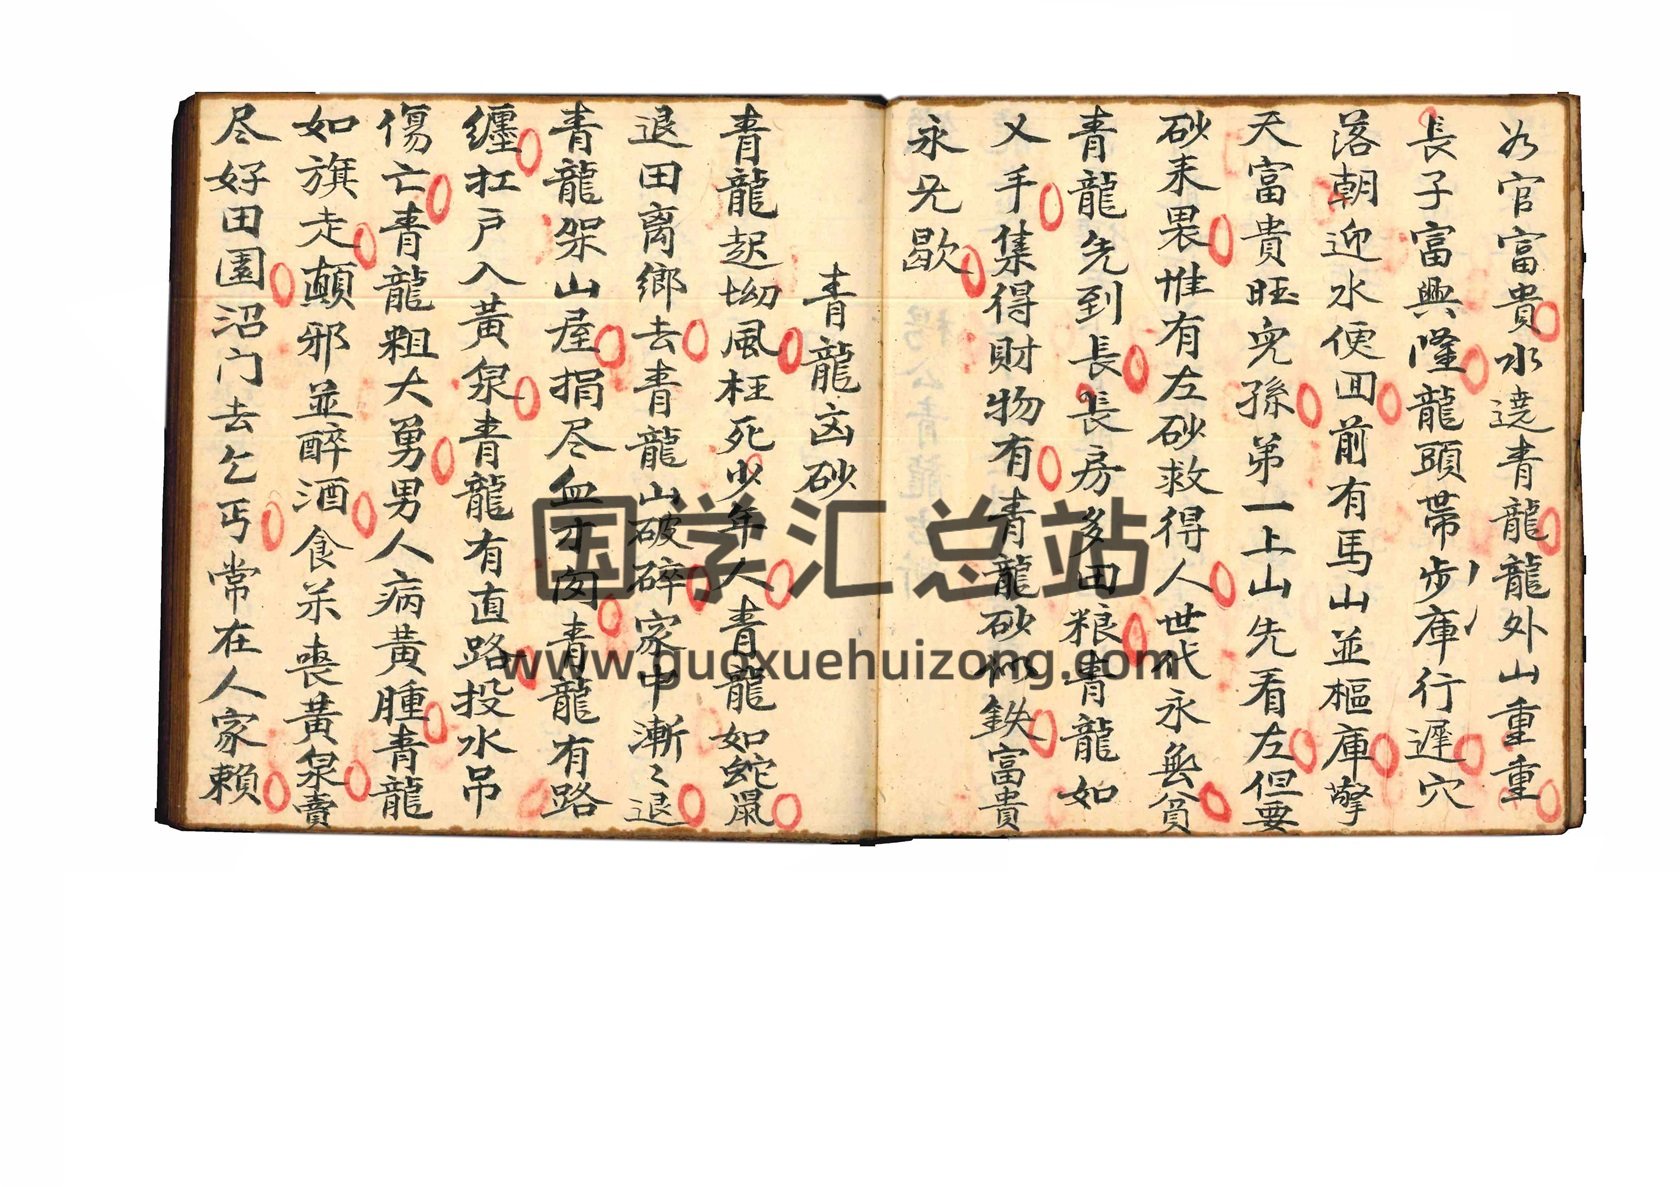 為官富貴水遶青龍龍外山重重
長子富興隆龍頭帶步庫行遲穴
落朝迎水便回前有馬山並樞庫擎
天富貴旺兒孫第一上山先看左但要
砂来裹惟有左砂救得人世代永無貧
青龍先到長長房多田粮青龍如
叉手集得財物有青龍砂似鉄富貴
永兄歇
青龍凶砂
青龍起坳風枉死少年人青龍如蛇鼠
退田离鄉去青龍山破碎家中漸〻退
青龍架山屋損尽血才肉青龍有路
纏扛户入黄泉青龍有直路投水吊
傷亡青龍粗大勇男人病黄腫青龍
如旗走顛邪並醉酒食茶喪黄泉賣
尽好田園沿门去乞丐常在人家賴
国学汇总站
www.guoxuehuizong.com